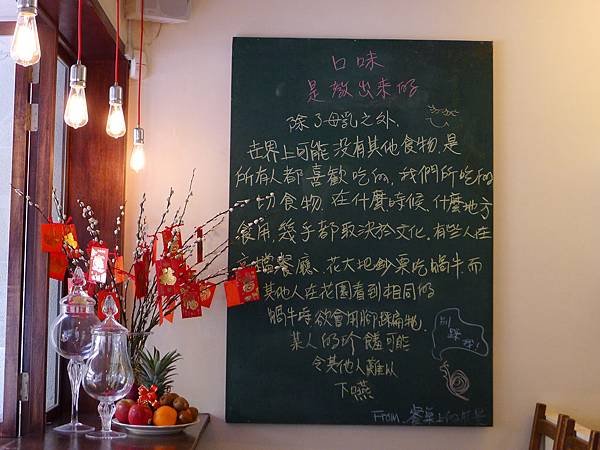 口味
是教出來的
除了母乳之外
世界上可能沒有其他食物,是
所有人都喜歡吃的,我們所吃的
一切食物,在什麼時候、什麼地方
食用,幾乎都取決於文化,有些人在
高檔餐廳、花大把鈔票吃蝸牛而
其他人在花園看到相同的
蝸牛時欲會用腳踩扁牠,
某人的珍饈可能
令其他人難以
下嚥
別踩我!
From. 餐桌上的